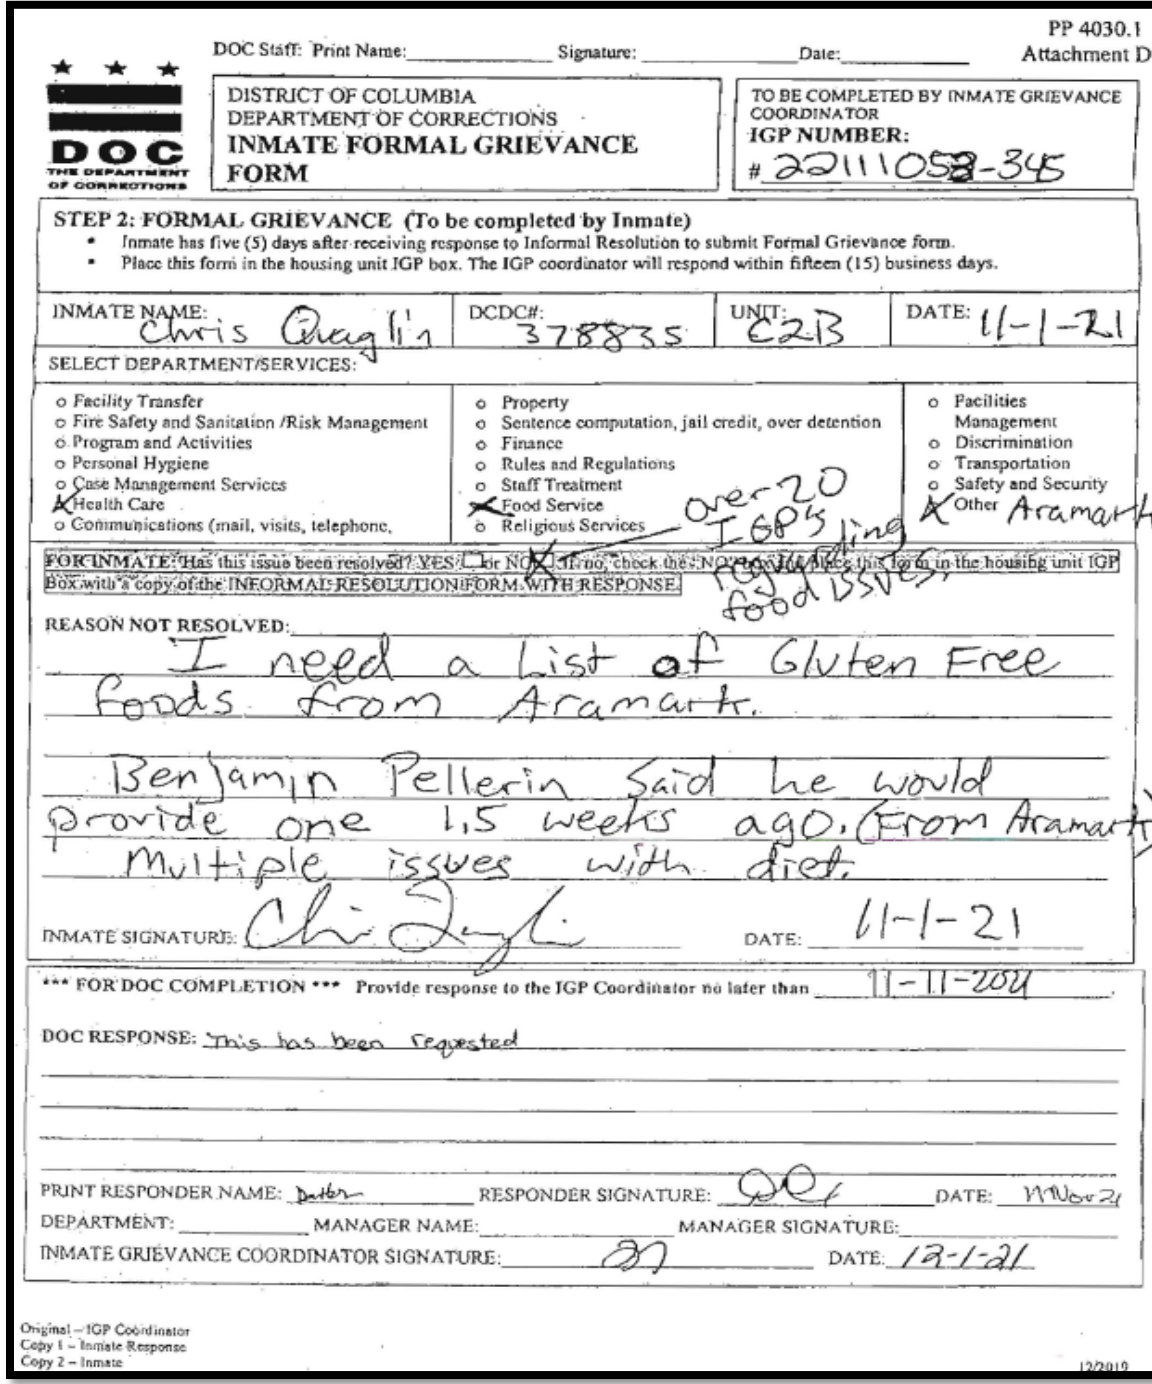 PP 4030.1
DOC Staff: Print Name: Signature: Date: Attachment D
DOC
THE DEPARTMENT
OF CORRECTIONS
DISTRICT OF COLUMBIA
DEPARTMENT OF CORRECTIONS
INMATE FORMAL GRIEVANCE
FORM
TO BE COMPLETED BY INMATE GRIEVANCE
COORDINATOR
IGP NUMBER:
# -345
STEP 2: FORMAL GRIEVANCE (To be completed by Inmate)
• Inmate has five (5) days after receiving response to Informal Resolution to submit Formal Grievance form.
• Place this form in the housing unit IGP box. The IGP coordinator will respond within fifteen (15) business days.
INMATE NAME: Chris Quaglin
DCDC#: 378835
UNIT: C2B
DATE: 11-1-21
SELECT DEPARTMENT/SERVICES:
o Facility Transfer
o Fire Safety and Sanitation /Risk Management
o Program and Activities
o Personal Hygiene
o Case Management Services
X Health Care
o Communications (mail, visits, telephone,
o Property
o Sentence computation, jail credit, over detention
o Finance
o Rules and Regulations
o Staff Treatment
X Food Service
o Religious Services
o Facilities
Management
o Discrimination
o Transportation
o Safety and Security
X Other Aramark
over 20
IGP's
regarding
food issues.
FOR INMATE: Has this issue been resolved? YES or NO X If no, check the "NO" box and place this form in the housing unit IGP
Box with a copy of the INFORMAL RESOLUTION FORM WITH RESPONSE.
REASON NOT RESOLVED:
I need a List of Gluten Free
foods from Aramark.
Benjamin Pellerin said he would
provide one 1.5 weeks ago. (From Aramark)
Multiple issues with diet.
INMATE SIGNATURE: DATE: 11-1-21
*** FOR DOC COMPLETION *** Provide response to the IGP Coordinator no later than 11-11-2021
DOC RESPONSE: This has been requested
PRINT RESPONDER NAME: RESPONDER SIGNATURE: DATE: 11Nov21
DEPARTMENT: MANAGER NAME: MANAGER SIGNATURE:
INMATE GRIEVANCE COORDINATOR SIGNATURE: DATE: 12-1-21
Original – IGP Coordinator
Copy 1 – Inmate Response
Copy 2 – Inmate
12/2019